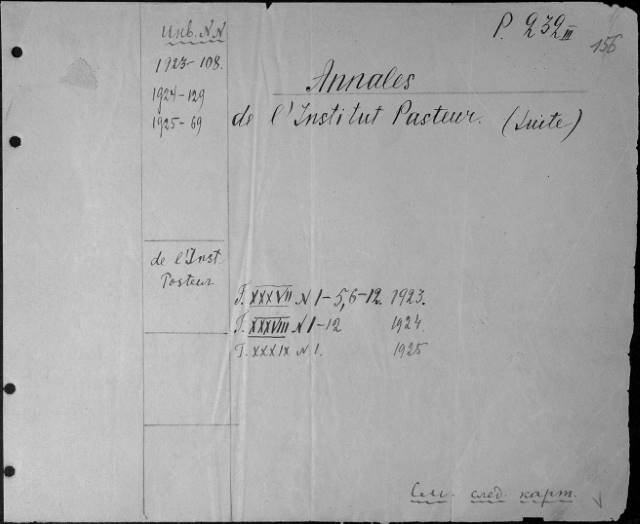 Инв. NN
P. 232 III
156
1923-108.
1924-129
1925-69
Annales
de l'Institut Pasteur. (Suite)
de l'Inst.
Pasteur
T. XXXVII N 1-5, 6-12. 1923.
T. XXXVIII N 1-12 1924.
T. XXXIX N 1. 1925
См. след. карт.